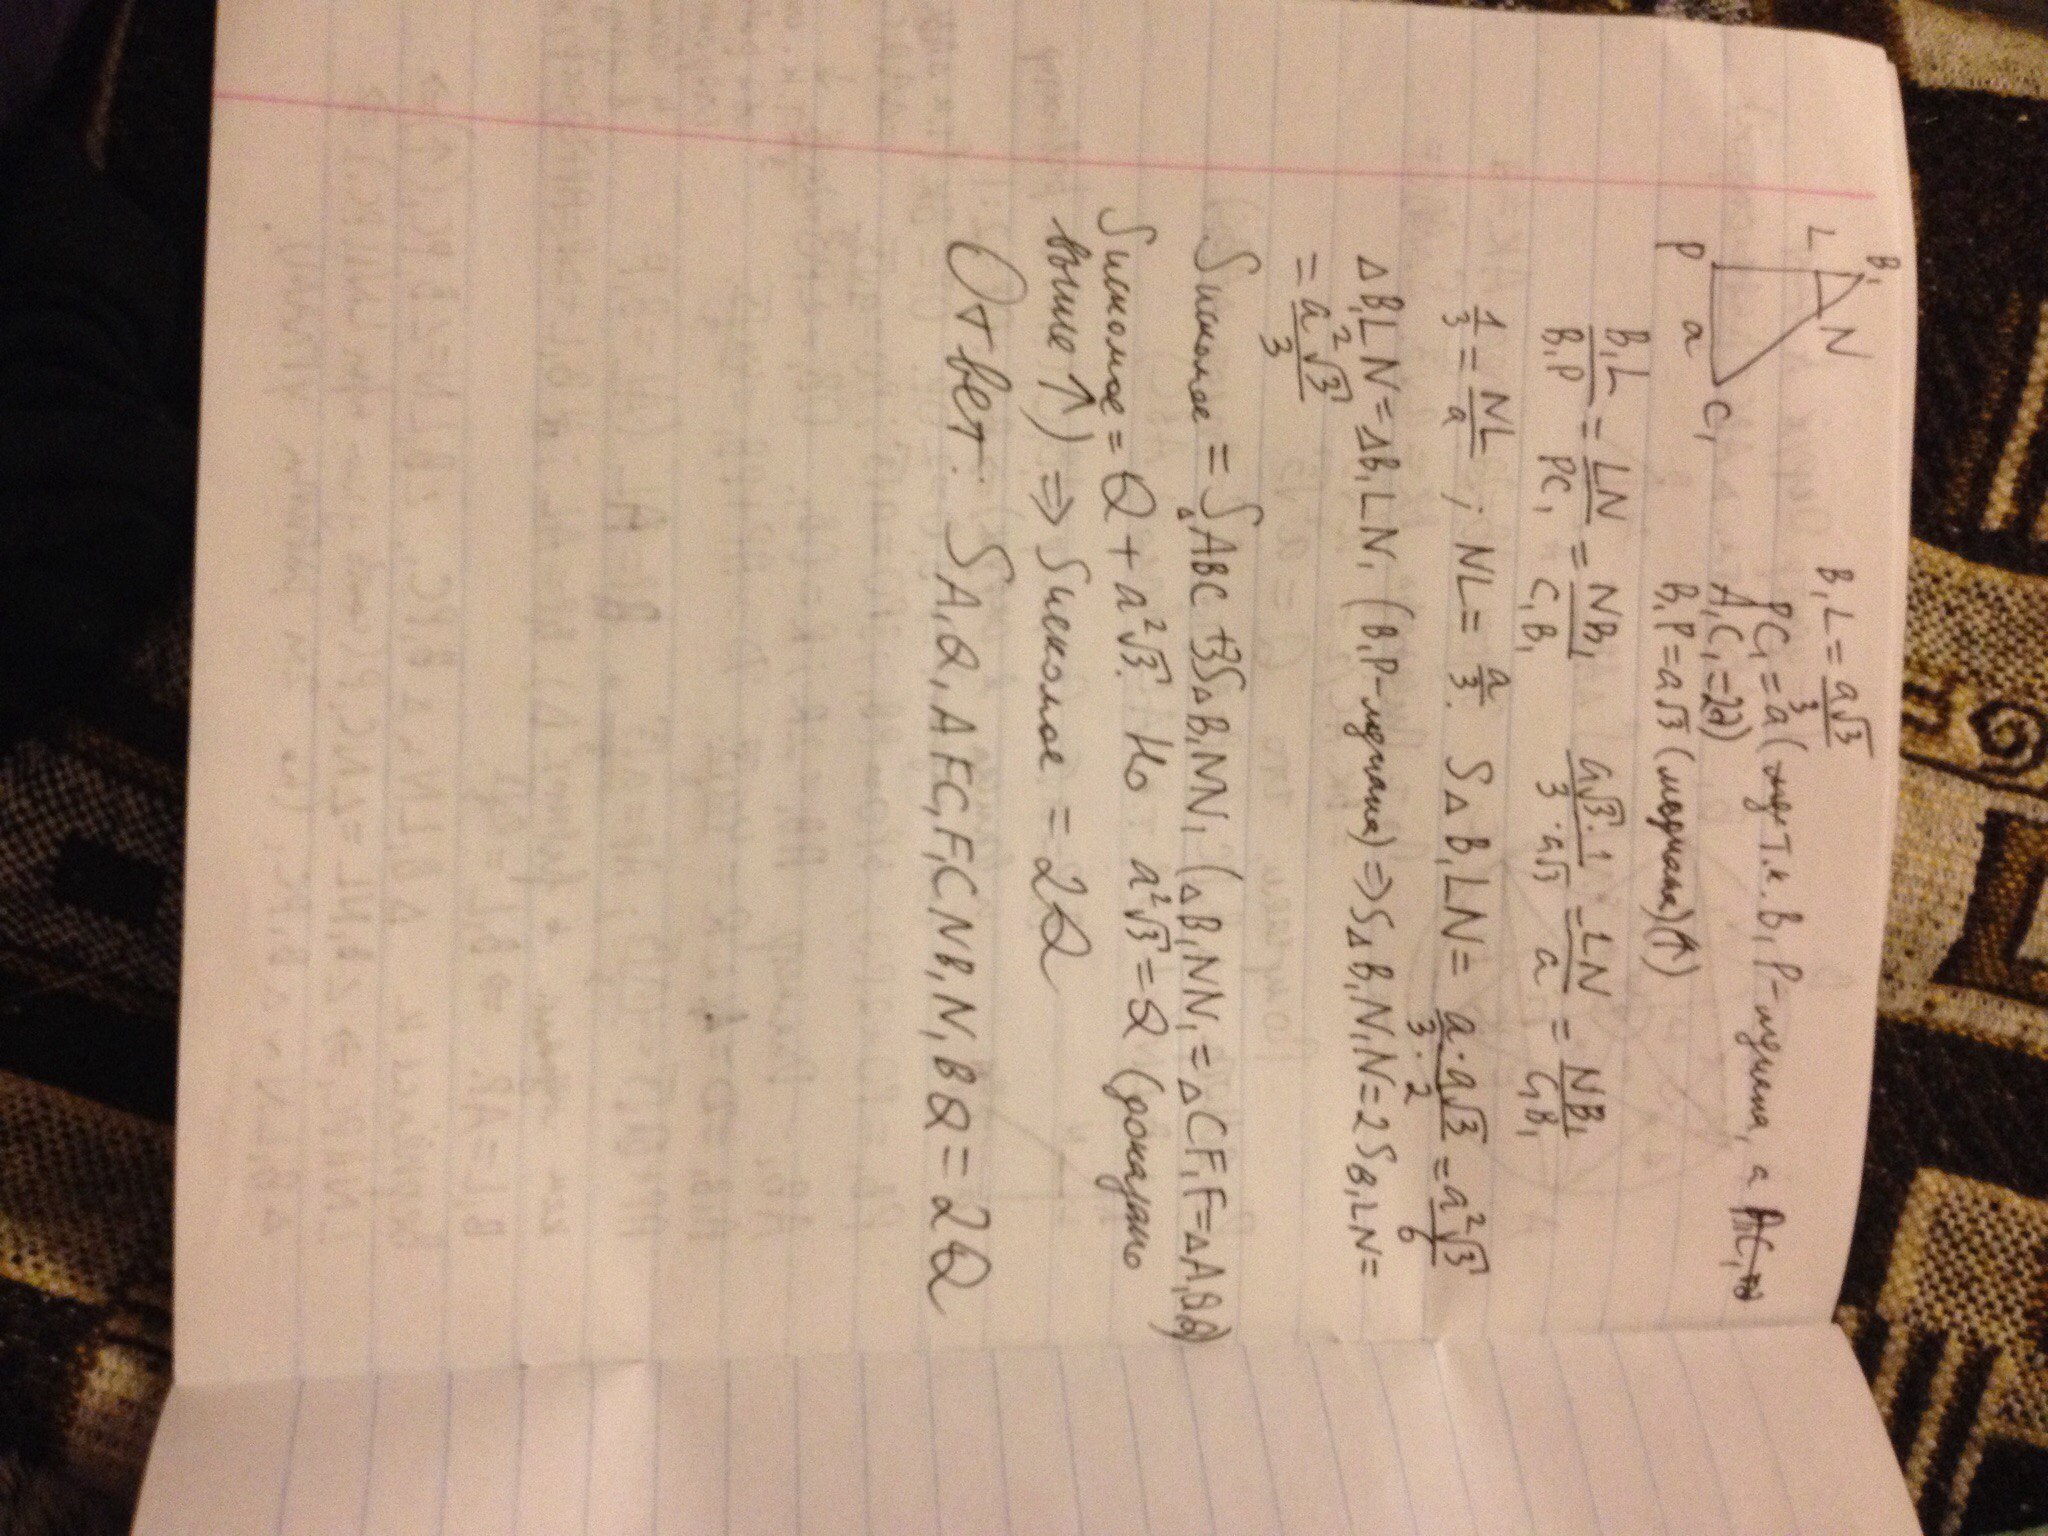 B₁
L
N
P
a
C₁
B₁L = a√3/3
PC₁ = a (т.к. B₁P-медиана, а
A₁C₁=2a)
B₁P = a√3 (медиана)(↑)
B₁L/B₁P = LN/PC₁ = NB₁/C₁B₁ a√3·1/3·a√3 = LN/a = NB₁/C₁B₁
1/3 = NL/a ; NL = a/3. S∆B₁LN = a·a√3/3·2 = a²√3/6
∆B₁LN = ∆B₁LN₁ (B₁P-медиана) ⇒ S∆B₁N₁N = 2S B₁LN =
= a²√3/3
Sискомое = S∆ABC + 3S∆B₁NN₁ (∆B₁NN₁ = ∆CF₁F = ∆A₁QQ₁)
Sискомое = Q + a²√3. Но a²√3 = Q (доказано
выше ↑) ⇒ Sискомое = 2Q
Ответ: SA₁Q₁AFC₁F₁CNB₁N₁BQ = 2Q